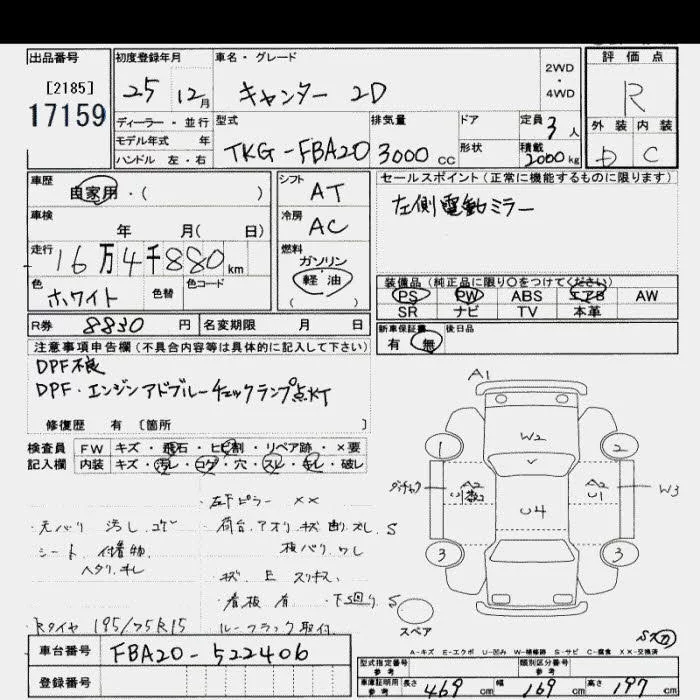 出品番号
[2185]
17159
初度登録年月
25 12月
車名・グレード
キャンター 2D
2WD
・
4WD
評価点
R
外装 内装
D C
ディーラー・並行
モデル年式 年
ハンドル 左・右
型式
TKG-FBA20
排気量
3000 cc
ドア
形状
定員 3 人
積載
2000 kg
車歴
自家用・( )
車検
年 月( 日)
走行
16万4千880 km
色
ホワイト
色替
色コード
シフト
AT
冷房
AC
燃料
ガソリン
軽油
( )
セールスポイント(正常に機能するものに限ります)
左側電動ミラー
装備品(純正品に限り○をつけてください)
PS PW ABS エアB AW
SR ナビ TV 本革
R券 8830 円
名変期限 月 日
新車保証書
有・無
後日品
注意事項申告欄(不具合内容等は具体的に記入して下さい)
DPF不良
DPF・エンジンアドブルーチェックランプ点灯
修復歴 有 [箇所 ]
検査員
記入欄
FW キズ・飛石・ヒビ割・リペア跡・×要
内装 キズ・汚レ・コゲ・穴・スレ・キレ・破レ
左下ピラー ××
汚レ コゲ
シート 付着物
ヘタリ
荷台 アオリ キズ 曲 スレ S
看板 有 下回り S
Rタイヤ 195/75R15
取付
A1
W2
1
2
A2
A2
U1
W3
U4
3
3
スペア
A-キズ E-エクボ U-凹み W-補修跡 S-サビ C-腐食 XX-交換済
車台番号 FBA20-522406
登録番号
型式指定番号
参考
類別区分番号
参考
車庫証明用
参考
長さ 469 cm 幅 169 cm 高さ 197 cm